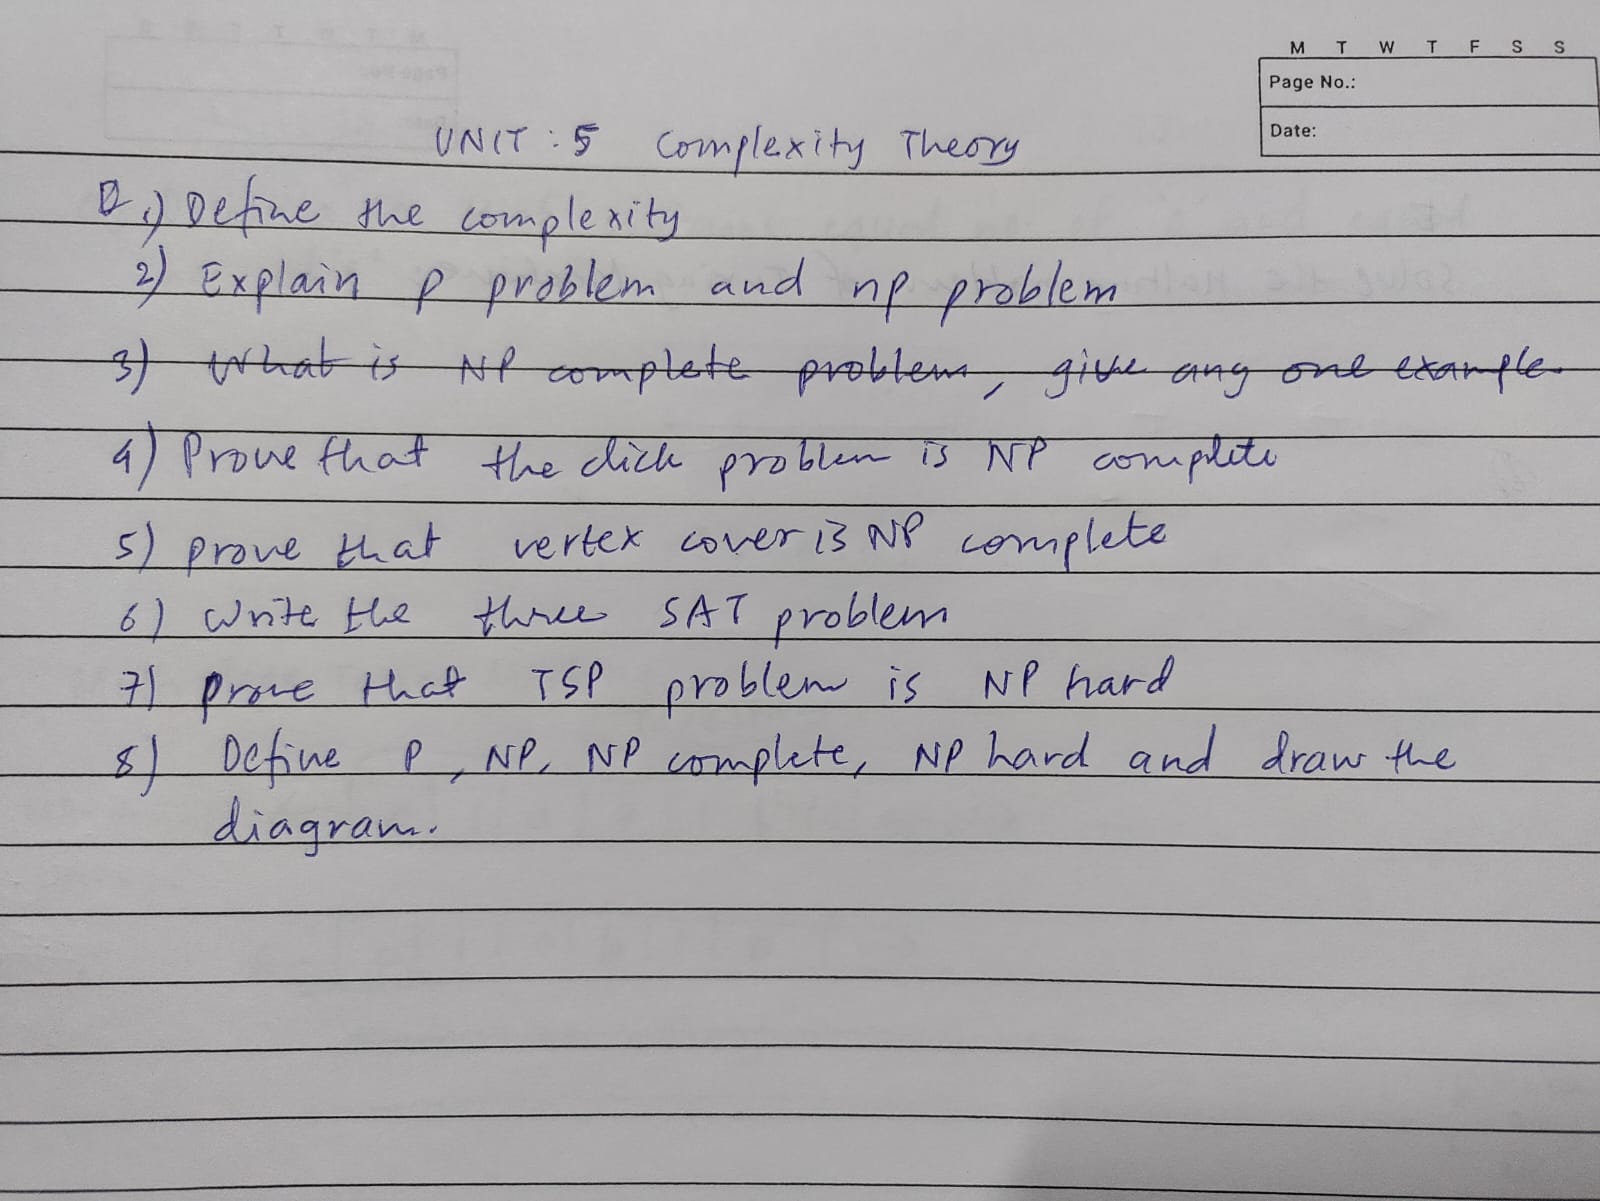 M T W T F S S
Page No.:
Date:
UNIT : 5 Complexity Theory
Q.1) Define the complexity
2) Explain p problem and np problem
3) What is NP complete problem, give any one example.
4) Prove that the click problem is NP complete
5) prove that vertex cover is NP complete
6) Write the three SAT problem
7) prove that TSP problem is NP hard
8) Define P, NP, NP complete, NP hard and draw the
diagram.